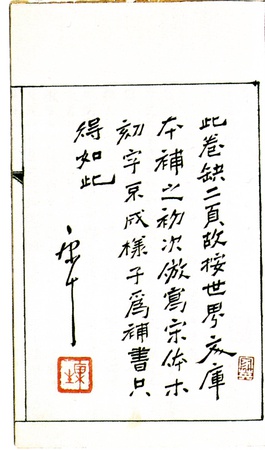 此卷缺二頁故按世界文庫
本補之初次倣寫宗体木
刻字不成樣子爲補書只
得如此